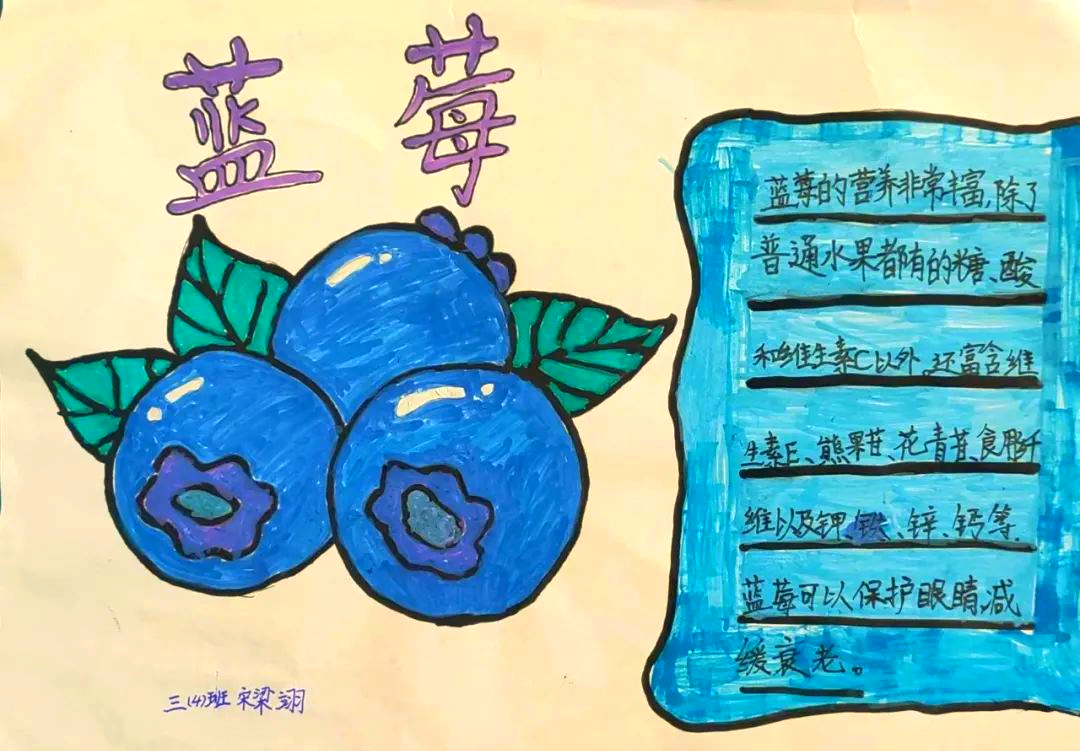 蓝莓
蓝莓的营养非常丰富,除了
普通水果都有的糖、酸
和维生素C以外,还富含维
生素E、熊果苷、花青苷、食用纤
维以及钾、铁、锌、钙等.
蓝莓可以保护眼睛减
缓衰老。
三(4)班 宋梁翊